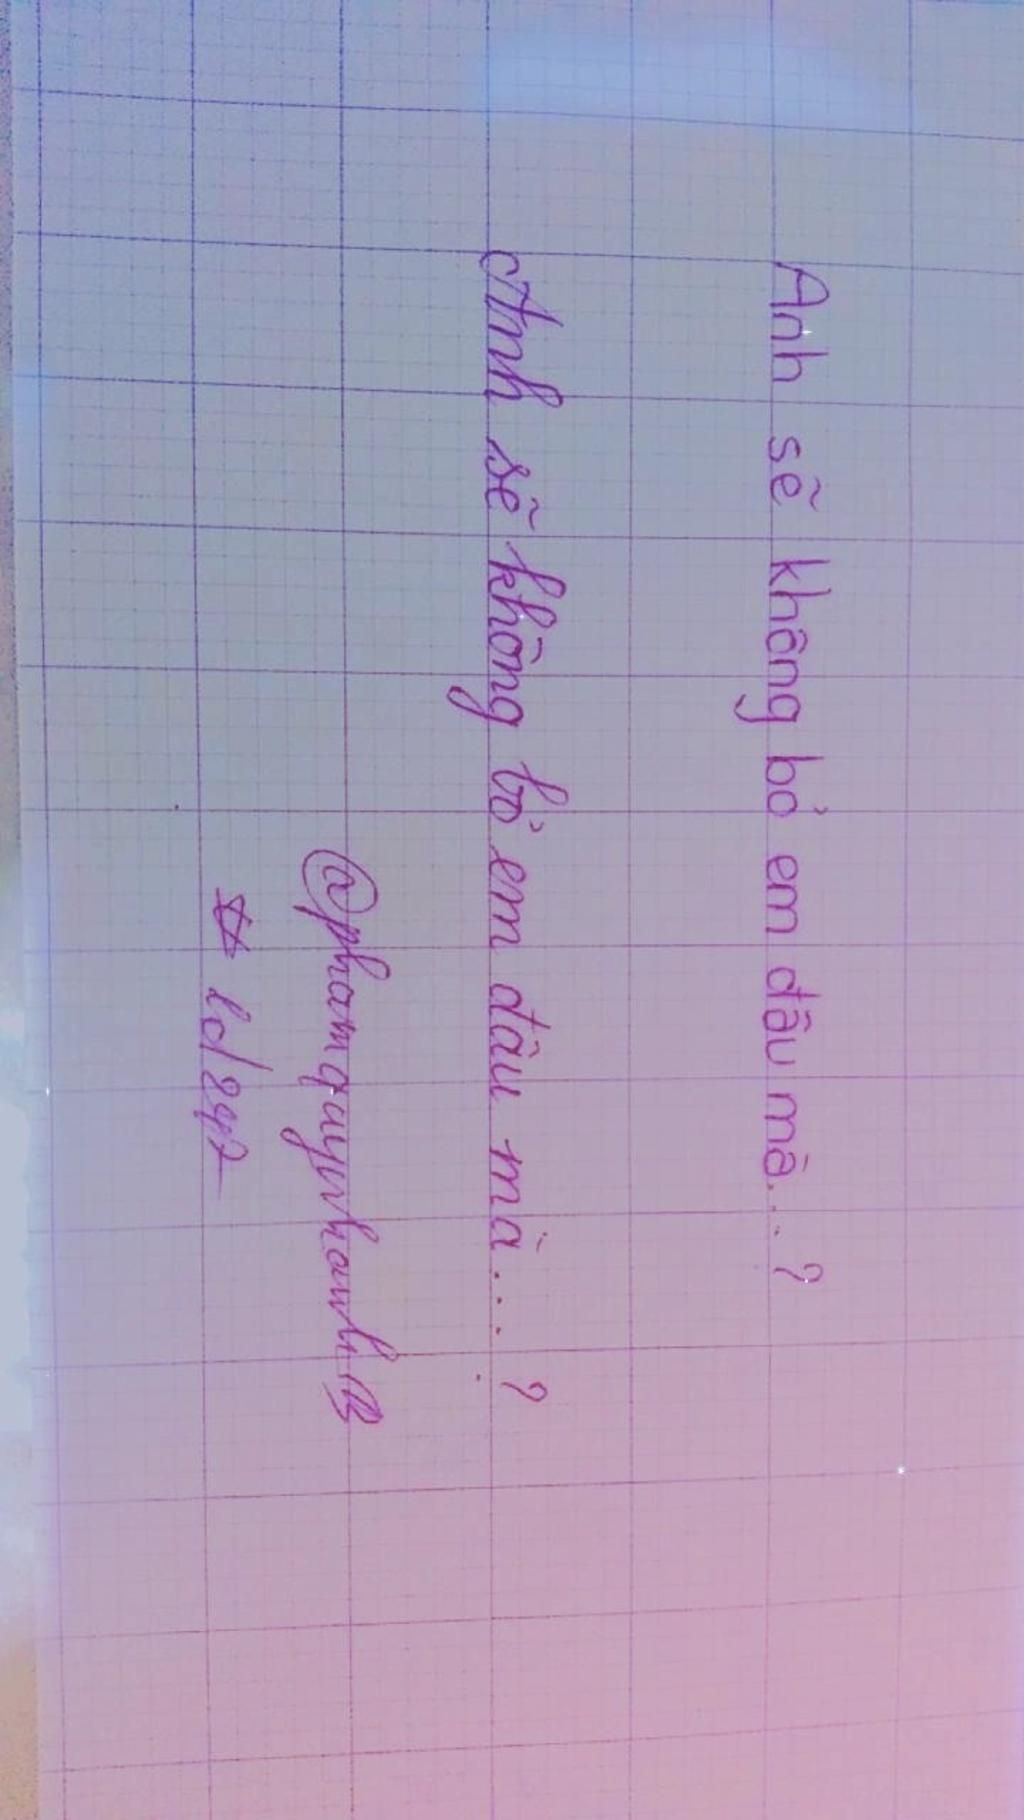 Anh sẽ không bỏ em đâu mà...?
Anh sẽ không bỏ em đâu mà....?